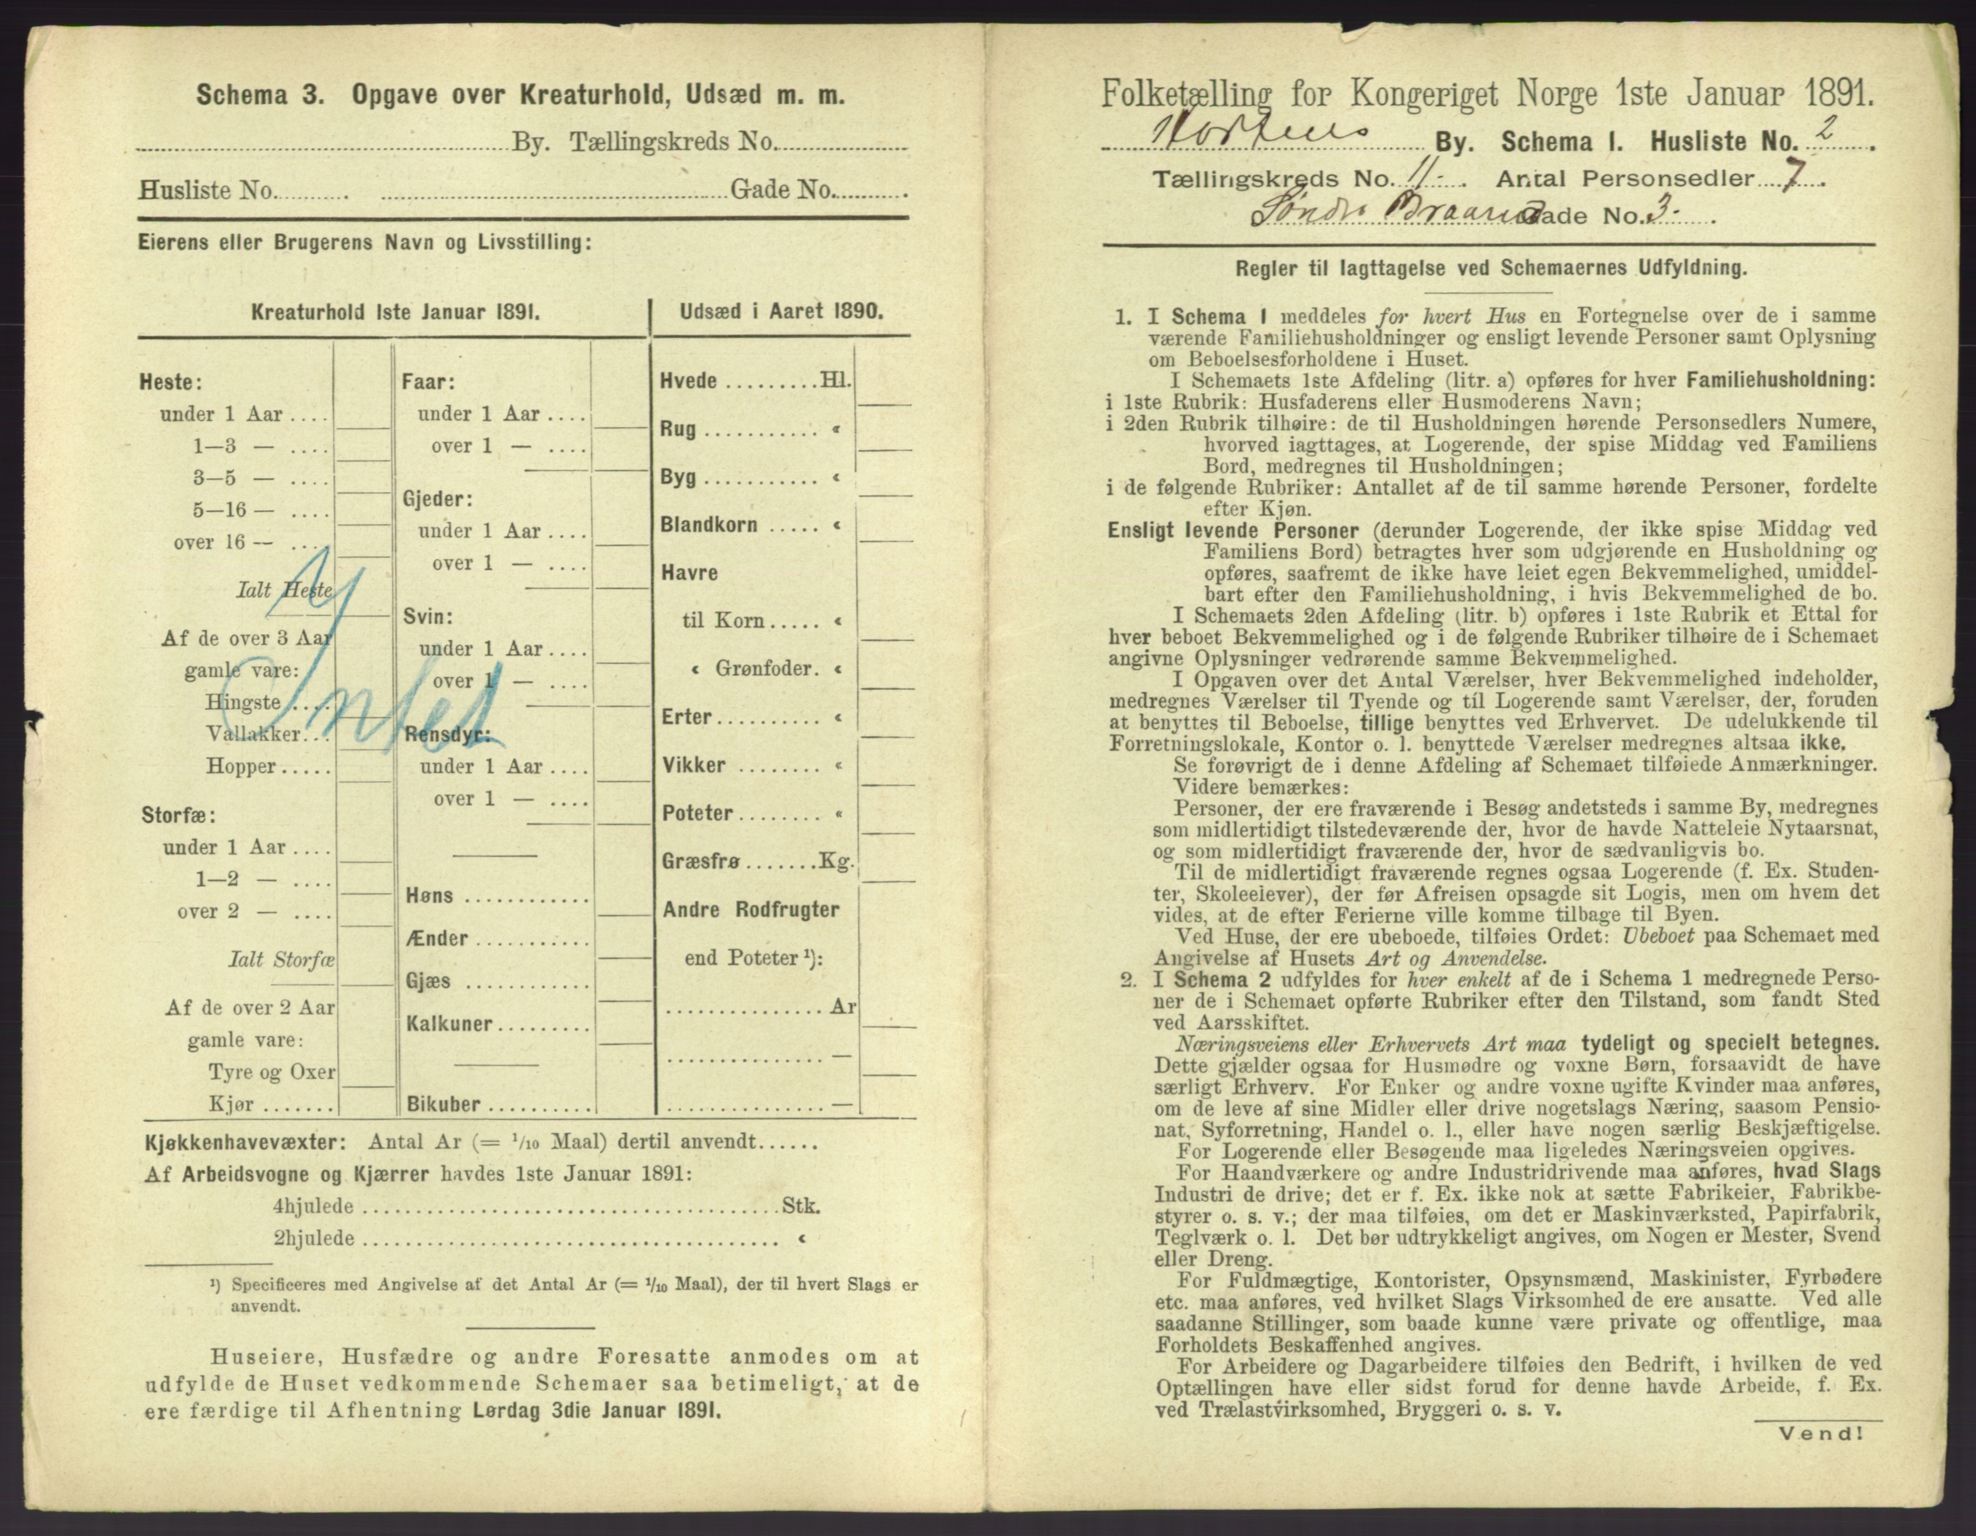 Schema 3. Opgave over Kreaturhold, Udsæd m. m.
By. Tællingskreds No.
Husliste No. Gade No.
Eierens eller Brugerens Navn og Livsstilling:
Kreaturhold 1ste Januar 1891.
Heste:
under 1 Aar ....
1—3 — ....
3—5 — ....
5—16 — ....
over 16 — ....
Ialt Heste
Af de over 3 Aar
gamle vare:
Hingste ....
Vallakker...
Hopper.....
Storfæ:
under 1 Aar ....
1—2 — ....
over 2 — ....
Ialt Storfæ
Af de over 2 Aar
gamle vare:
Tyre og Oxer
Kjør .......
Intet
Faar:
under 1 Aar ....
over 1 — ....
Gjeder:
under 1 Aar ....
over 1 — ....
Svin:
under 1 Aar ....
over 1 — ....
Rensdyr:
under 1 Aar ....
over 1 — ....
Høns ............
Ænder ...........
Gjæs ............
Kalkuner.........
Bikuber ..........
Udsæd i Aaret 1890.
Hvede .........Hl.
Rug ........... «
Byg ........... «
Blandkorn ..... «
Havre
til Korn..... «
« Grønfoder. «
Erter.......... «
Vikker ........ «
Poteter........ «
Græsfrø .......Kg.
Andre Rodfrugter
end Poteter ¹):
............... Ar
............... —
............... —
Kjøkkenhavevæxter: Antal Ar (= 1/10 Maal) dertil anvendt......
Af Arbeidsvogne og Kjærrer havdes 1ste Januar 1891:
4hjulede ....................................... Stk.
2hjulede ....................................... «
¹) Specificeres med Angivelse af det Antal Ar (= 1/10 Maal), der til hvert Slags er
anvendt.
Huseiere, Husfædre og andre Foresatte anmodes om at
udfylde de Huset vedkommende Schemaer saa betimeligt, at de
ere færdige til Afhentning Lørdag 3die Januar 1891.
Folketælling for Kongeriget Norge 1ste Januar 1891.
Hortens By. Schema I. Husliste No. 2.
Tællingskreds No. 11. Antal Personsedler 7.
Søndre Braarud Gade No. 3.
Regler til Iagttagelse ved Schemaernes Udfyldning.
1. I Schema I meddeles for hvert Hus en Fortegnelse over de i samme
værende Familiehusholdninger og ensligt levende Personer samt Oplysning
om Beboelsesforholdene i Huset.
I Schemaets 1ste Afdeling (litr. a) opføres for hver Familiehusholdning:
i 1ste Rubrik: Husfaderens eller Husmoderens Navn;
i 2den Rubrik tilhøire: de til Husholdningen hørende Personsedlers Numere,
hvorved iagttages, at Logerende, der spise Middag ved Familiens
Bord, medregnes til Husholdningen;
i de følgende Rubriker: Antallet af de til samme hørende Personer, fordelte
efter Kjøn.
Ensligt levende Personer (derunder Logerende, der ikke spise Middag ved
Familiens Bord) betragtes hver som udgjørende en Husholdning og
opføres, saafremt de ikke have leiet egen Bekvemmelighed, umiddel-
bart efter den Familiehusholdning, i hvis Bekvemmelighed de bo.
I Schemaets 2den Afdeling (litr. b) opføres i 1ste Rubrik et Ettal for
hver beboet Bekvemmelighed og i de følgende Rubriker tilhøire de i Schemaet
angivne Oplysninger vedrørende samme Bekvemmelighed.
I Opgaven over det Antal Værelser, hver Bekvemmelighed indeholder,
medregnes Værelser til Tyende og til Logerende samt Værelser, der, foruden
at benyttes til Beboelse, tillige benyttes ved Erhvervet. De udelukkende til
Forretningslokale, Kontor o. l. benyttede Værelser medregnes altsaa ikke.
Se forøvrigt de i denne Afdeling af Schemaet tilføiede Anmærkninger.
Videre bemærkes:
Personer, der ere fraværende i Besøg andetsteds i samme By, medregnes
som midlertidigt tilstedeværende der, hvor de havde Natteleie Nytaarsnat,
og som midlertidigt fraværende der, hvor de sædvanligvis bo.
Til de midlertidigt fraværende regnes ogsaa Logerende (f. Ex. Studen-
ter, Skoleeiever), der før Afreisen opsagde sit Logis, men om hvem det
vides, at de efter Ferierne ville komme tilbage til Byen.
Ved Huse, der ere ubeboede, tilføies Ordet: Ubeboet paa Schemaet med
Angivelse af Husets Art og Anvendelse.
2. I Schema 2 udfyldes for hver enkelt af de i Schema 1 medregnede Perso-
ner de i Schemaet opførte Rubriker efter den Tilstand, som fandt Sted
ved Aarsskiftet.
Næringsveiens eller Erhvervets Art maa tydeligt og specielt betegnes.
Dette gjælder ogsaa for Husmødre og voxne Børn, forsaavidt de have
særligt Erhverv. For Enker og andre voxne ugifte Kvinder maa anføres,
om de leve af sine Midler eller drive nogetslags Næring, saasom Pensio-
nat, Syforretning, Handel o. l., eller have nogen særlig Beskjæftigelse.
For Logerende eller Besøgende maa ligeledes Næringsveien opgives.
For Haandværkere og andre Industridrivende maa anføres, hvad Slags
Industri de drive; det er f. Ex. ikke nok at sætte Fabrikeier, Fabrikbe-
styrer o. s. v.; der maa tilføies, om det er Maskinværksted, Papirfabrik,
Teglværk o. l. Det bør udtrykkeligt angives, om Nogen er Mester, Svend
eller Dreng.
For Fuldmægtige, Kontorister, Opsynsmænd, Maskinister, Fyrbødere
etc. maa anføres, ved hvilket Slags Virksomhed de ere ansatte. Ved alle
saadanne Stillinger, som baade kunne være private og offentlige, maa
Forholdets Beskaffenhed angives.
For Arbeidere og Dagarbeidere tilføies den Bedrift, i hvilken de ved
Optællingen have eller sidst forud for denne havde Arbeide, f. Ex.
ved Trælastvirksomhed, Bryggeri o. s. v.
Vend!